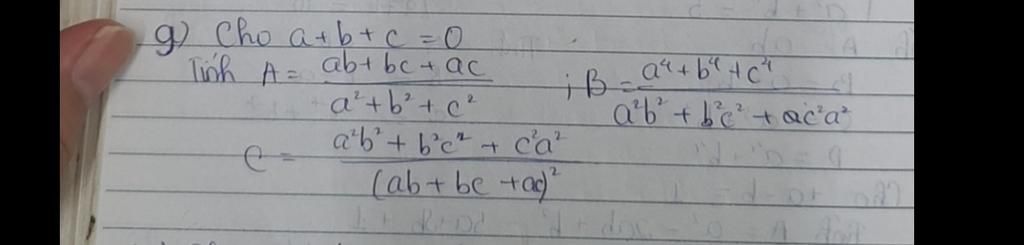 g) Cho a+b+c=0
Tính A = \frac{ab+bc+ac}{a²+b²+c²} ; B = \frac{a⁴+b⁴+c⁴}{a²b²+b²c²+ac²a²}
C = \frac{a²b²+b²c²+c²a²}{(ab+bc+ac)²}